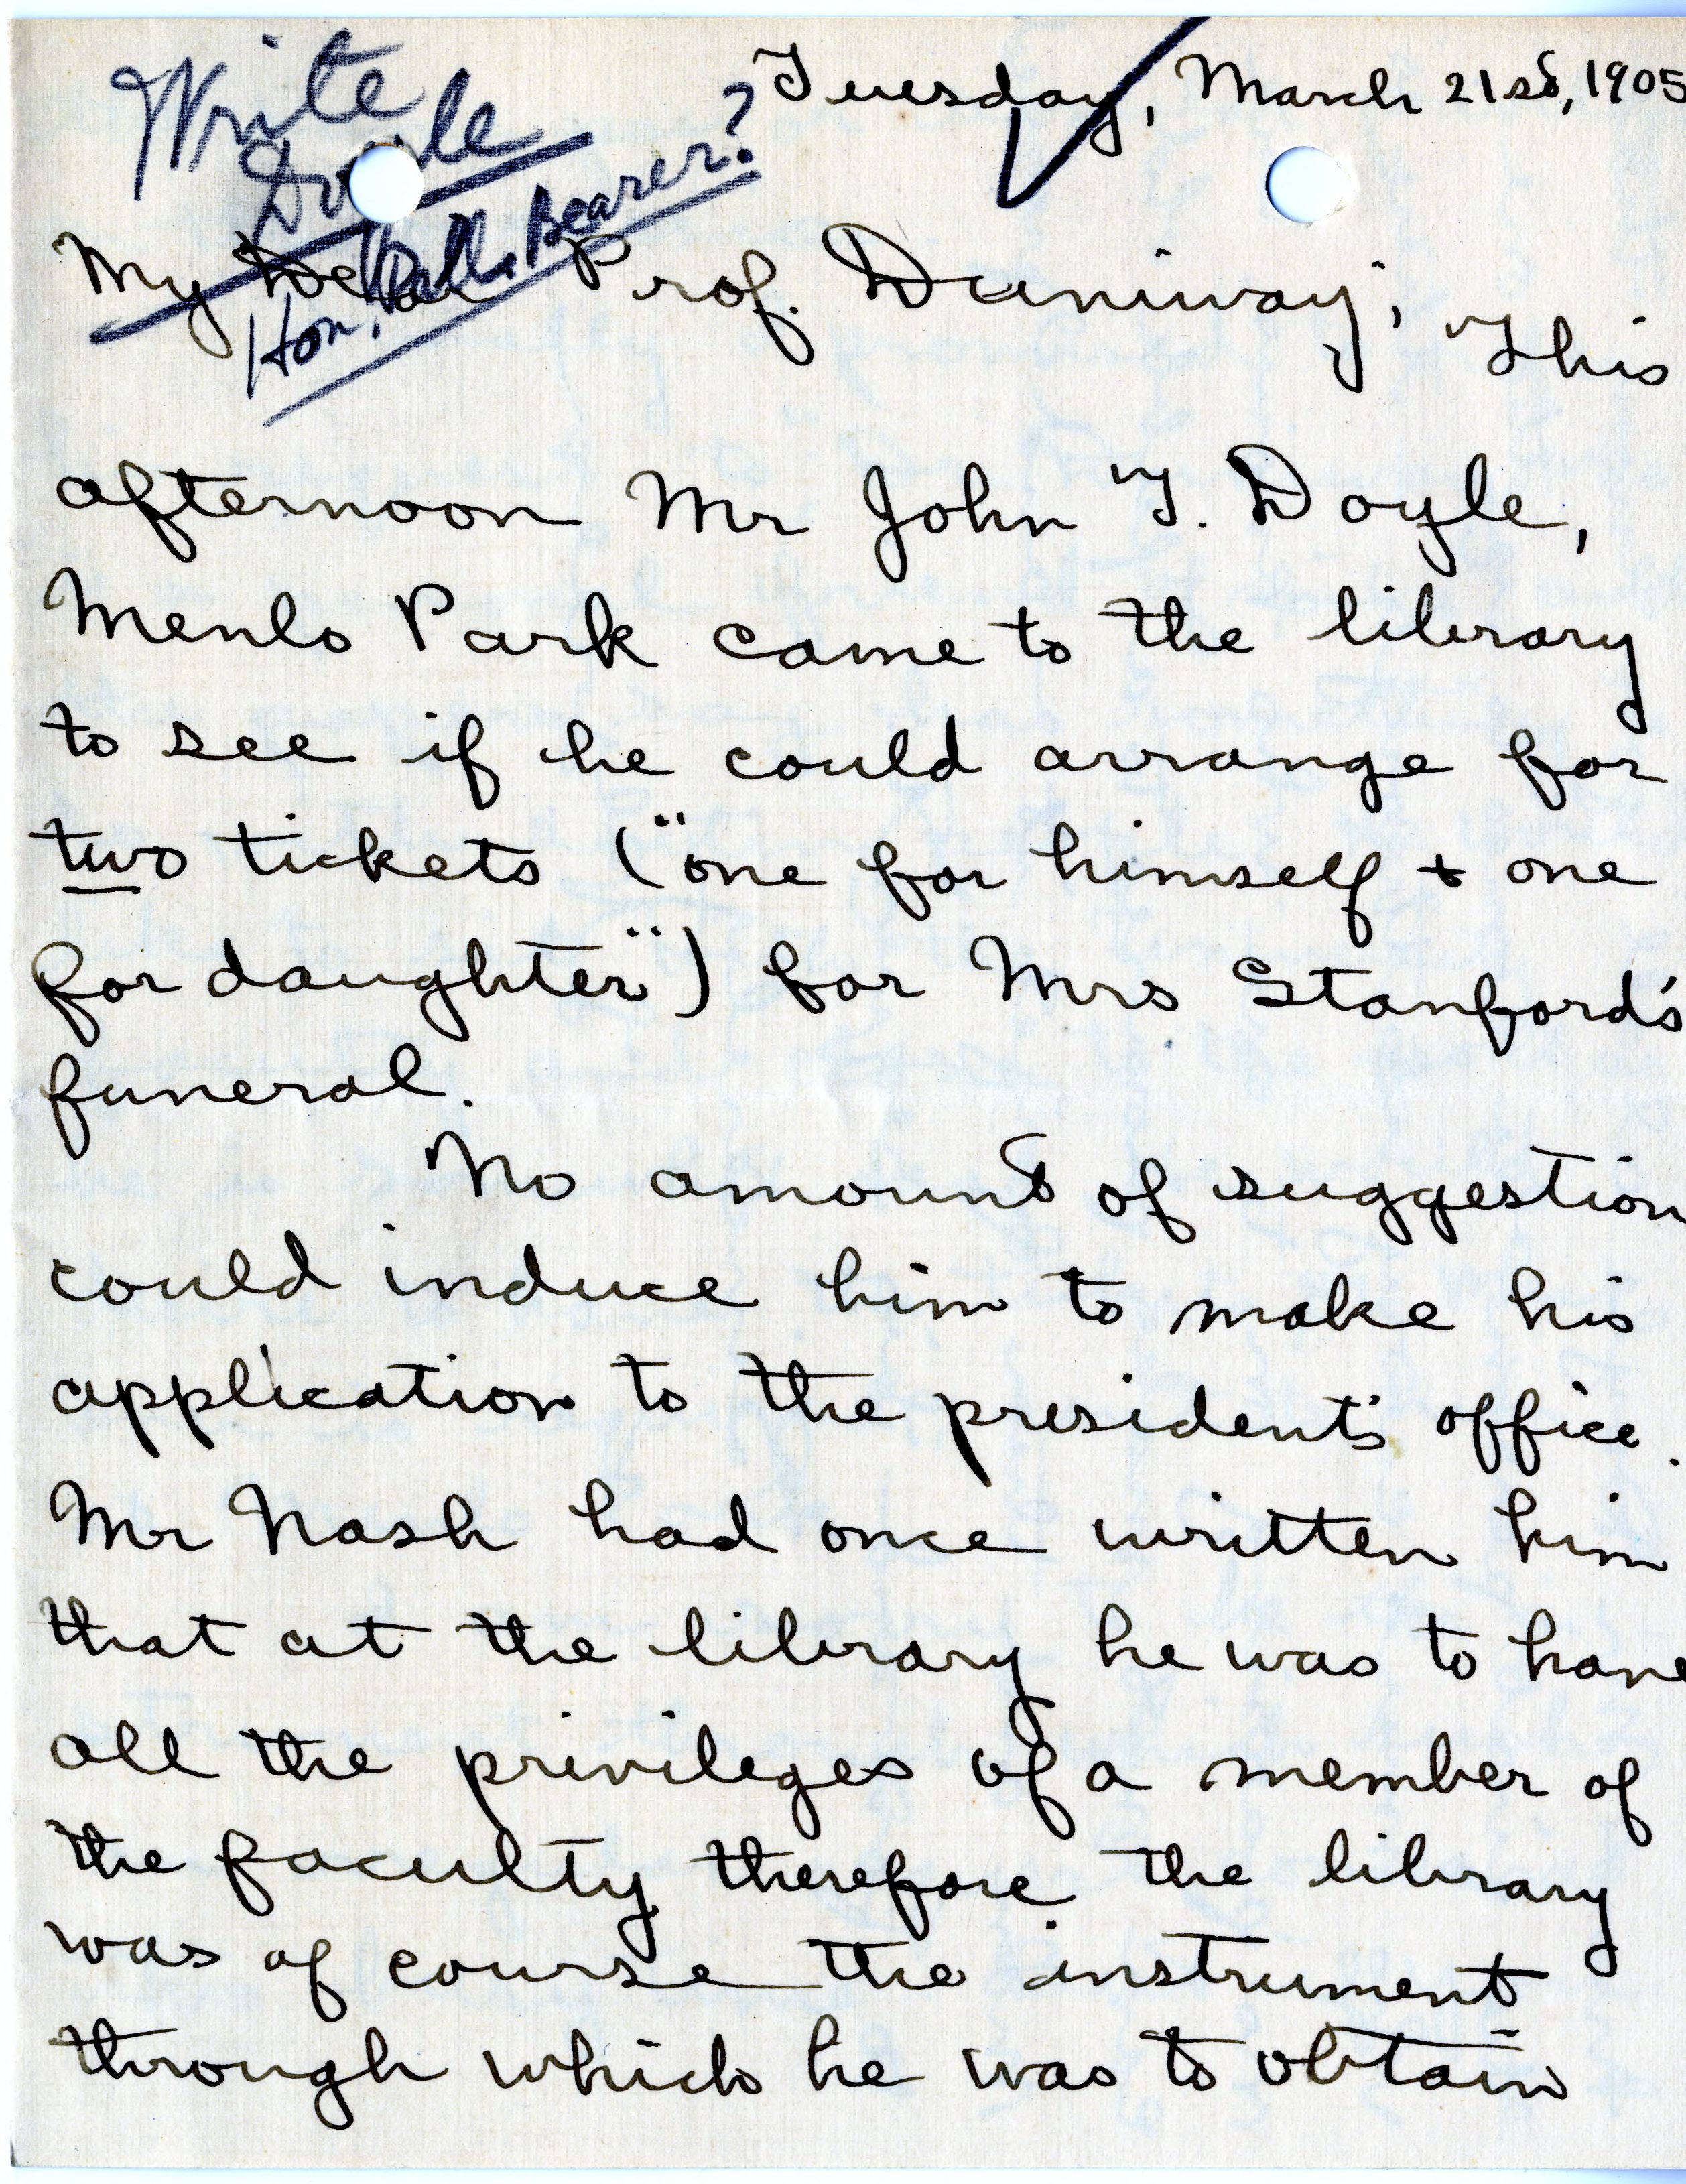 Write
Doyle
Hon. Pall Bearer?
Tuesday, March 21st, 1905
My Dear Prof. Duniway;
This
afternoon Mr John T. Doyle,
Menlo Park came to the library
to see if he could arrange for
two tickets ("one for himself + one
for daughter") for Mrs Stanford's
funeral.
No amount of suggestion
could induce him to make his
application to the president's office.
Mr Nash had once written him
that at the library he was to have
all the privileges of a member of
the faculty therefore the library
was of course the instrument
through which he was to obtain